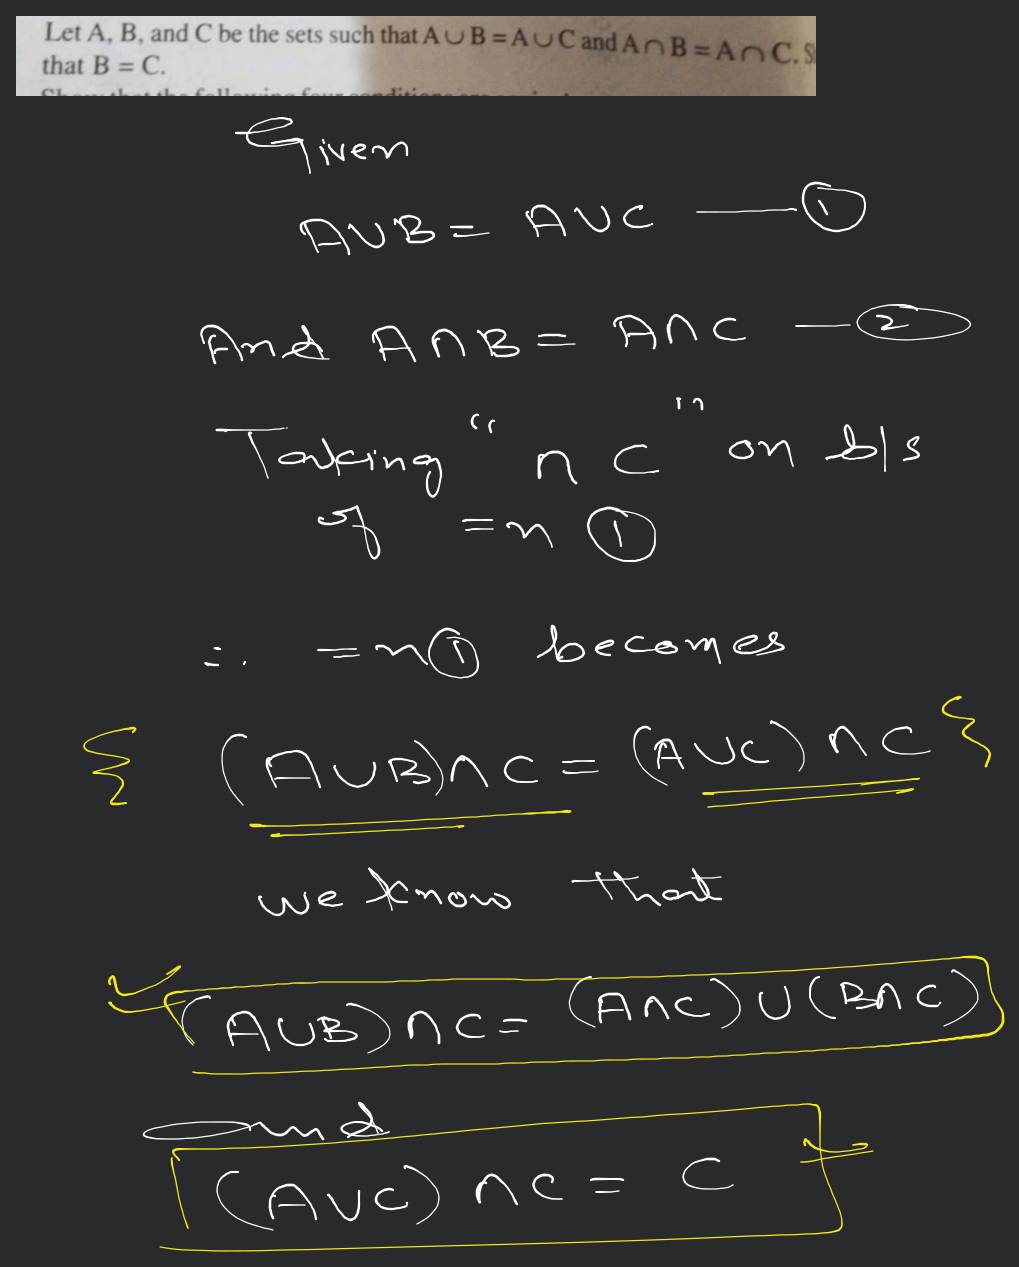 Let A, B, and C be the sets such that A ∪ B = A ∪ C and A ∩ B = A ∩ C. S
that B = C.
Given
A∪B = A∪C — ①
And A∩B = A∩C — ②
Taking "∩ C" on b/s
of =n ①
∴ =n ① becomes
{ (A∪B)∩C = (A∪C)∩C }
we know that
(A∪B)∩C = (A∩C)∪(B∩C)
and
(A∪C)∩C = C